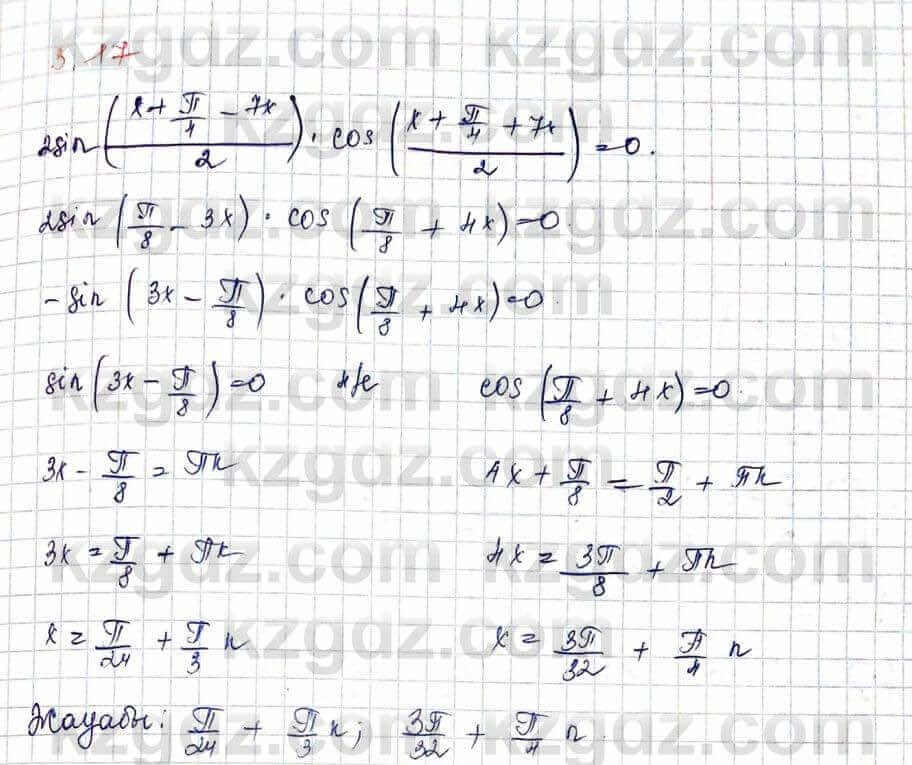 kzgdz.com kzgdz.com
3.17
2sin((x + π/4 - 7x)/2) · cos((x + π/4 + 7x)/2) = 0.
2sin(π/8 - 3x) · cos(π/8 + 4x) = 0.
-sin(3x - π/8) · cos(π/8 + 4x) = 0.
sin(3x - π/8) = 0 н/е cos(π/8 + 4x) = 0.
3x - π/8 = πk 4x + π/8 = π/2 + πn
3x = π/8 + πk 4x = 3π/8 + πn
x = π/24 + π/3 n x = 3π/32 + π/4 n
Жауабы: π/24 + π/3 n; 3π/32 + π/4 n.